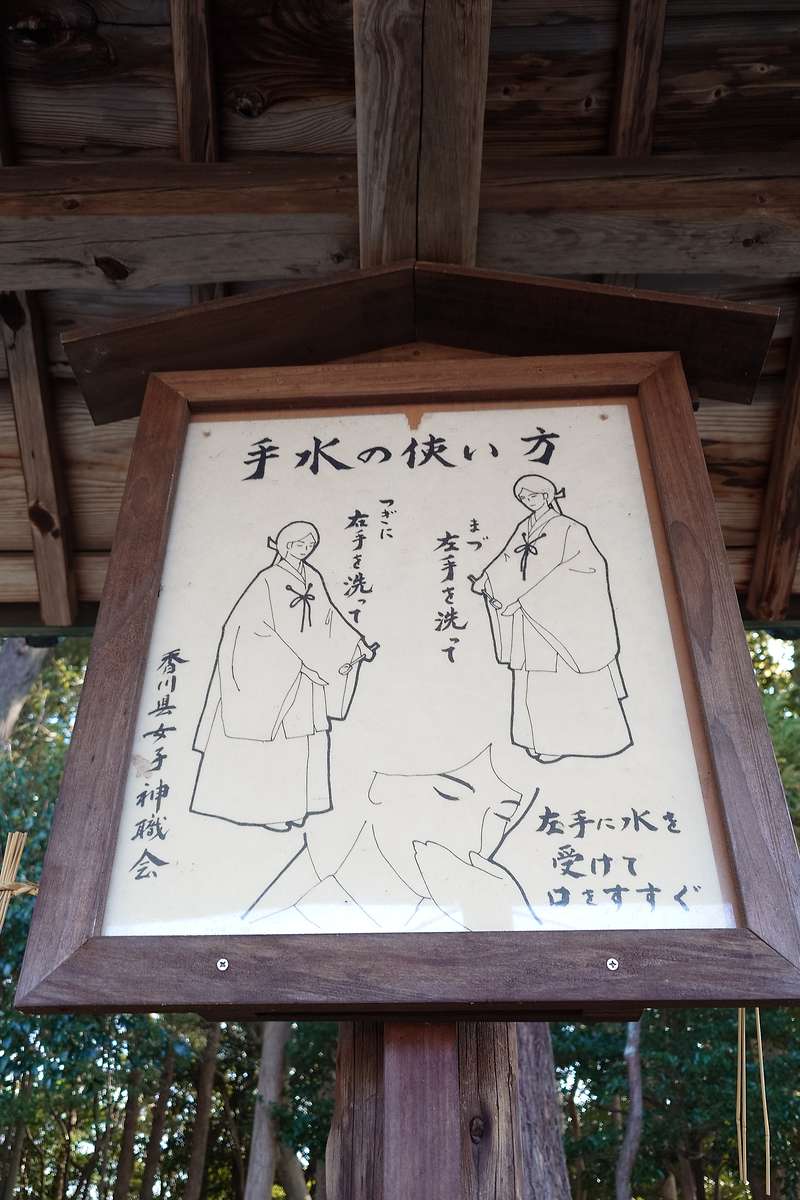 手水の使い方
まづ
左手を洗って
つぎに
右手を洗って
左手に水を
受けて
口をすすぐ
香川県女子神職会